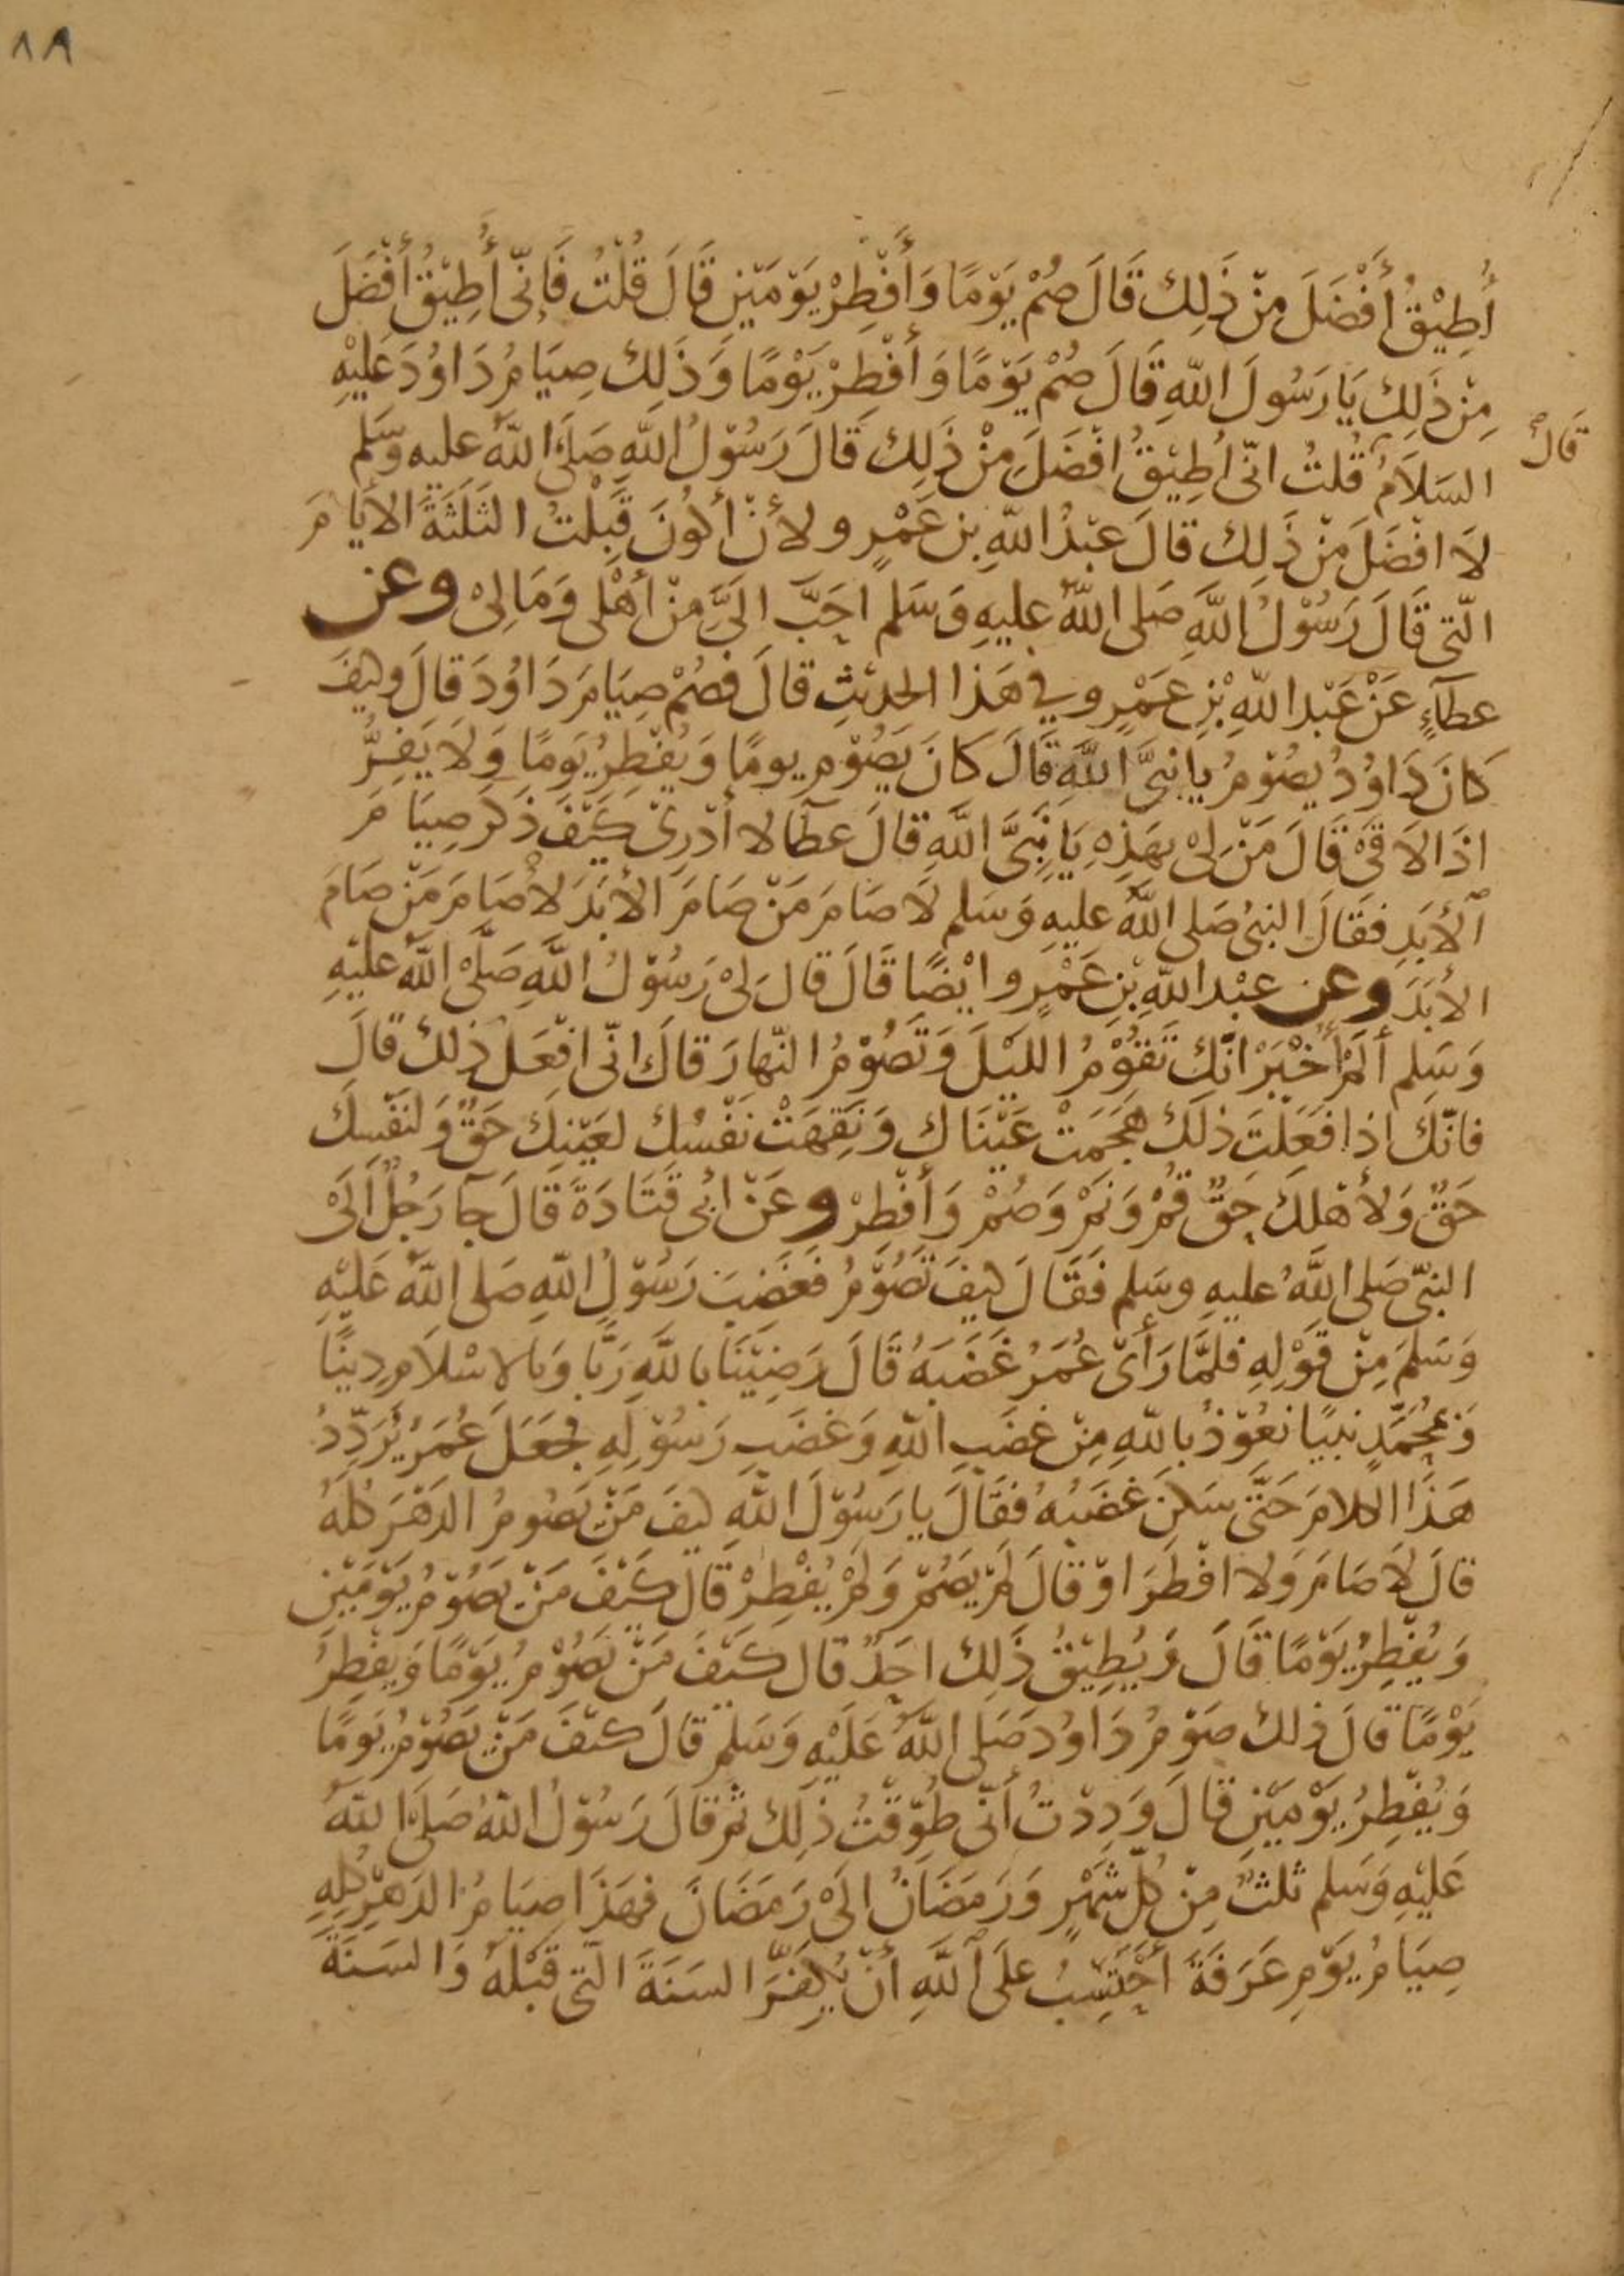 ٨٩
أُطِيْقُ أَفْضَلَ مِنْ ذَلِكَ قَالَ صُمْ يَوْمًا وَأَفْطِرْ يَوْمَيْنِ قَالَ قُلْتُ فَإِنّى أُطِيْقُ أَفْضَلَ
مِنْ ذَلِكَ يَا رَسُولَ اللّهِ قَالَ صُمْ يَوْمًا وَأَفْطِرْ يَوْمًا وَذَلِكَ صِيَامُ دَاوُدَ عَلَيْهِ
قَالَ
السَلَامُ قُلتُ انّى اُطِيْقُ افْضَلَ مِنْ ذَلِكَ قَالَ رَسُوْلُ اللّهِ صَلَى اللّهُ عليه وَسَلم
لَا افْضَلَ مِنْ ذَلِكَ قالَ عَبْدُ اللّهِ بن عَمْرٍو لأنْ أَكُونَ قَبِلْتُ الثَلَثَةَ الأيامَ
الّتى قَالَ رَسُوْلُ اللّهِ صَلى اللّهُ عليهِ وَسَلم احَبَّ الَىَّ مِنْ أَهْلى وَمَالِىْ وعن
عطآءٍ عَنْ عَبْد اللّهِ بْنِ عَمْرٍو في هَذا الحديْثِ قالَ فصُمْ صِيَامَ دَاوُدَ قالَ وكيفَ
كَانَ دَاوُدُ يصُوْمُ يا نبىَّ اللّهِ قَالَ كَانَ يَصُوْمُ يومًا وَيُفْطِرُ يَومًا وَلَا يَفِرُّ
اذَا لَاقَىْ قَالَ مَنْ لِىْ بهَذِهِ يَا نَبِىَّ اللّهِ قالَ عطآ لا أَدْرِىْ كَيْفَ ذَكَرَ صِيَامَ
الأبَدِ فقَالَ النبىُ صَلى اللّهُ عليهِ وَسَلم لَا صَامَ مَنْ صَامَ الأبَدَ لَا صَامَ مَنْ صَامَ
الأَبَدَ وعن عبْد اللّهِ بْنِ عَمْرٍو ايْضًا قَالَ قالَ لِىْ رَسُوْلُ اللّهِ صَلَّىْ اللّهُ عليْهِ
وَسَلم أَلَمْ أُخْبَرْ انَّكَ تَقُوْمُ الليْلَ وَتَصُوْمُ النّهارَ قالَ انّى افْعَلُ ذلكَ قالَ
فانّكَ اذا فعَلْتَ ذلَكَ هَجَمَتْ عَيْنَاكَ وَنَقِهَتْ نَفْسُكَ لعَيْنِكَ حَقٌّ وَلنَفْسِكَ
حَقٌّ وَلأَهْلكَ حَقٌّ قُمْ وَنَمْ وَصُمْ وَأَفْطِرْ وعَنْ ابُى قَتَادَةَ قَالَ جآ رَجُلٌ الَىْ
النبىّ صَلى اللّهُ عليهِ وسَلم فَقَالَ كيفَ تَصُوْمُ فغَضِبَ رَسُوْلُ اللّهِ صَلى اللّهُ عَليْهِ
وَسَلمَ مِنْ قَوْلِهِ فلمَّا رَأَىْ عُمَرُ غَضَبَهُ قَالَ رَضِيْنَا باللّهِ رَبًّا وَبالاسْلَامِ دِينًا
وَبمُحَمَّدٍ نبيًا نعُوْذُ باللّهِ مِنْ غَضَبِ اللّهِ وَغَضَبِ رَسُوْلِهِ فجعَلَ عُمَرُ يُرَدِّدُ
هَذَا الكلامَ حَتَّى سَكنَ غضَبُهُ فقَالَ يا رَسُوْلَ اللّهِ كيفَ مَنْ يَصُومُ الدَهْرَ كُلَهُ
قالَ لَا صَامَ وَلا افْطَرَ اوْ قالَ لَمْ يَصُمْ وَلَمْ يُفْطِرْ قالَ كَيْفَ مَنْ يَصُوْمُ يَوْمَيْنِ
وَيُفْطِرُ يَوْمًا قَالَ وَيُطِيْقُ ذَلِكَ احَدٌ قال كَيْفَ مَنْ يَصُوْمُ يَوْمًا وَيفْطِرُ
يَوْمًا قَالَ ذلكَ صَوْمُ دَاوُدَ صَلى اللّهُ عَلَيْهِ وَسَلم قَالَ كَيْفَ مَنْ يَصُوْمُ يَومًا
وَيُفْطِرُ يَوْمَيْنِ قالَ وَدِدْتُ أَنّى طُوِّقْتُ ذلِكَ ثم قالَ رَسُوْلُ اللّهُ صَلَى اللّهُ
عَليْهِ وَسَلم ثلثٌ مِنْ كُلّ شَهْرٍ وَرَمَضَانُ الَىْ رَمَضَانَ فهَذَا صِيَامُ الدَهْرِ كُلِهِ
صِيَامُ يَوْمِ عَرَفَةَ أَحْتَسِبُ عَلَى اللّهِ أَنْ يُكفِّرَ السَنَةَ الّتى قَبْلَهُ وَالسَنَةَ